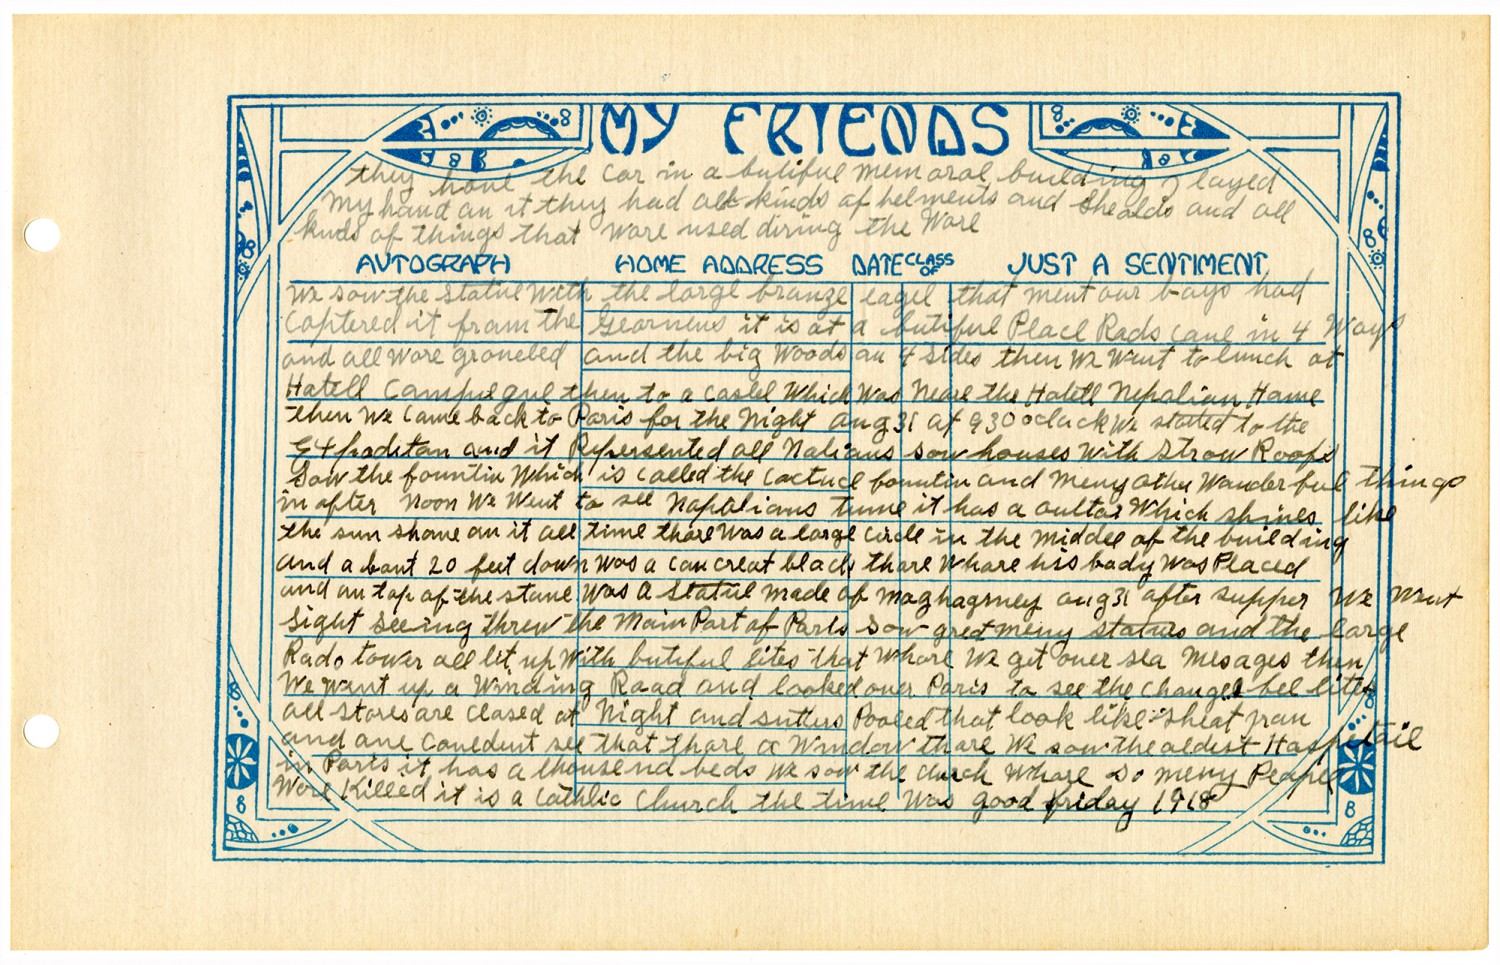 MY FRIENDS
they have the car in a butiful memoral building I layed
My hand on it they had all kinds of helments and shealds and all
kinds of things that Ware used diring the Ware
AUTOGRAPH HOME ADDRESS DATE CLASS OF JUST A SENTIMENT
We saw the Statue With the large branze eagel that ment our boys had
Coptered it from the it is at a butiful Place Rads came in 4 Ways
and all Wore groneled and the big Woods on 4 sides then We Went to lunch at
Hatell then to a Castel Which Was Neare the Hatell Nepalian Hame
then We came back to Paris for the Night aug 31 at 930 oclack We stated to the
and it Repersented all Nations saw houses With Straw Roofs
Saw the fountin Which is called the Cactuce fountin and Meny other Wanderful things
in after Noon We Went to see Napolians tume it has a aultar Which shines like
the sun shone on it all time thare Was a large circle in the middle of the building
and a bout 20 feet down Was a concreat black thare Whare his body Was Placed
and on top of the stone Was a Statue made of aug 31 after supper We Went
Sight Seeing threw the Main Part of Paris Saw great meny statues and the large
Rado tower all lit up With butiful lites that Whare We get over sea Mesages then
We Want up a Winding Road and looked over Paris to see the changel bel lites
all stores are closed at Night and Pooled that look like sheat iran
and one Conedent see that thare a Window thare We saw the oldest Haspitail
in Paris it has a thousend beds We saw the church Whare so meny People
Ware Killed it is a Cathlic Church the time Was good friday 1918
8
8
8
8
8
8
8
8